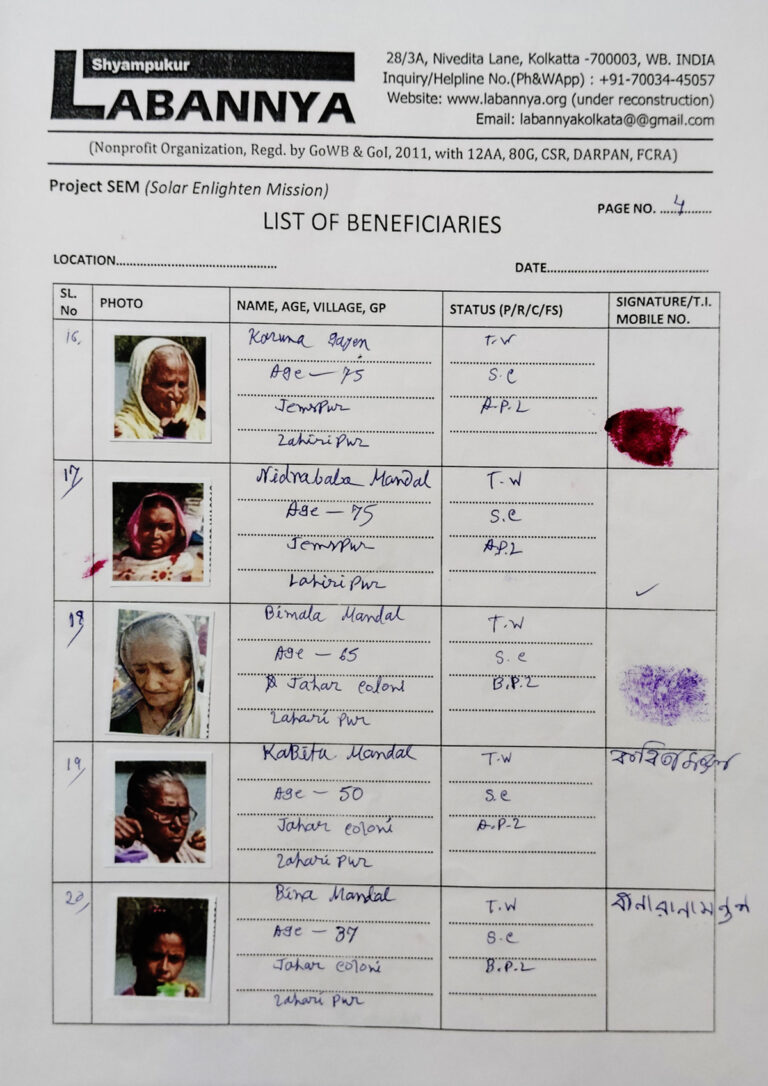 Shyampukur
LABANNYA
28/3A, Nivedita Lane, Kolkatta -700003, WB. INDIA
Inquiry/Helpline No.(Ph&WApp) : +91-70034-45057
Website: www.labannya.org (under reconstruction)
Email: labannyakolkata@@gmail.com
(Nonprofit Organization, Regd. by GoWB & GoI, 2011, with 12AA, 80G, CSR, DARPAN, FCRA)
Project SEM (Solar Enlighten Mission)
PAGE NO. ...4...
LIST OF BENEFICIARIES
LOCATION...............................................
DATE...............................................
SL. No PHOTO NAME, AGE, VILLAGE, GP STATUS (P/R/C/FS) SIGNATURE/T.I. MOBILE NO.
16, Koruna Gayen T.W
Age — 75 S.C
JemsPur A.P.L
Lahiripur
17, Nidrabala Mandal T.W
Age — 75 S.C
JemsPur A.P.L
Lahiripur
18, Bimala Mandal T.W
Age — 65 S.C
Jahar Coloni B.P.L
Lahari Pur
19, KaBita Mandal T.W
Age — 50 S.C
Jahar Coloni A.P.L
Lahari Pur
20, Bina Mandal T.W
Age — 37 S.C
Jahar Coloni B.P.L
Lahari Pur